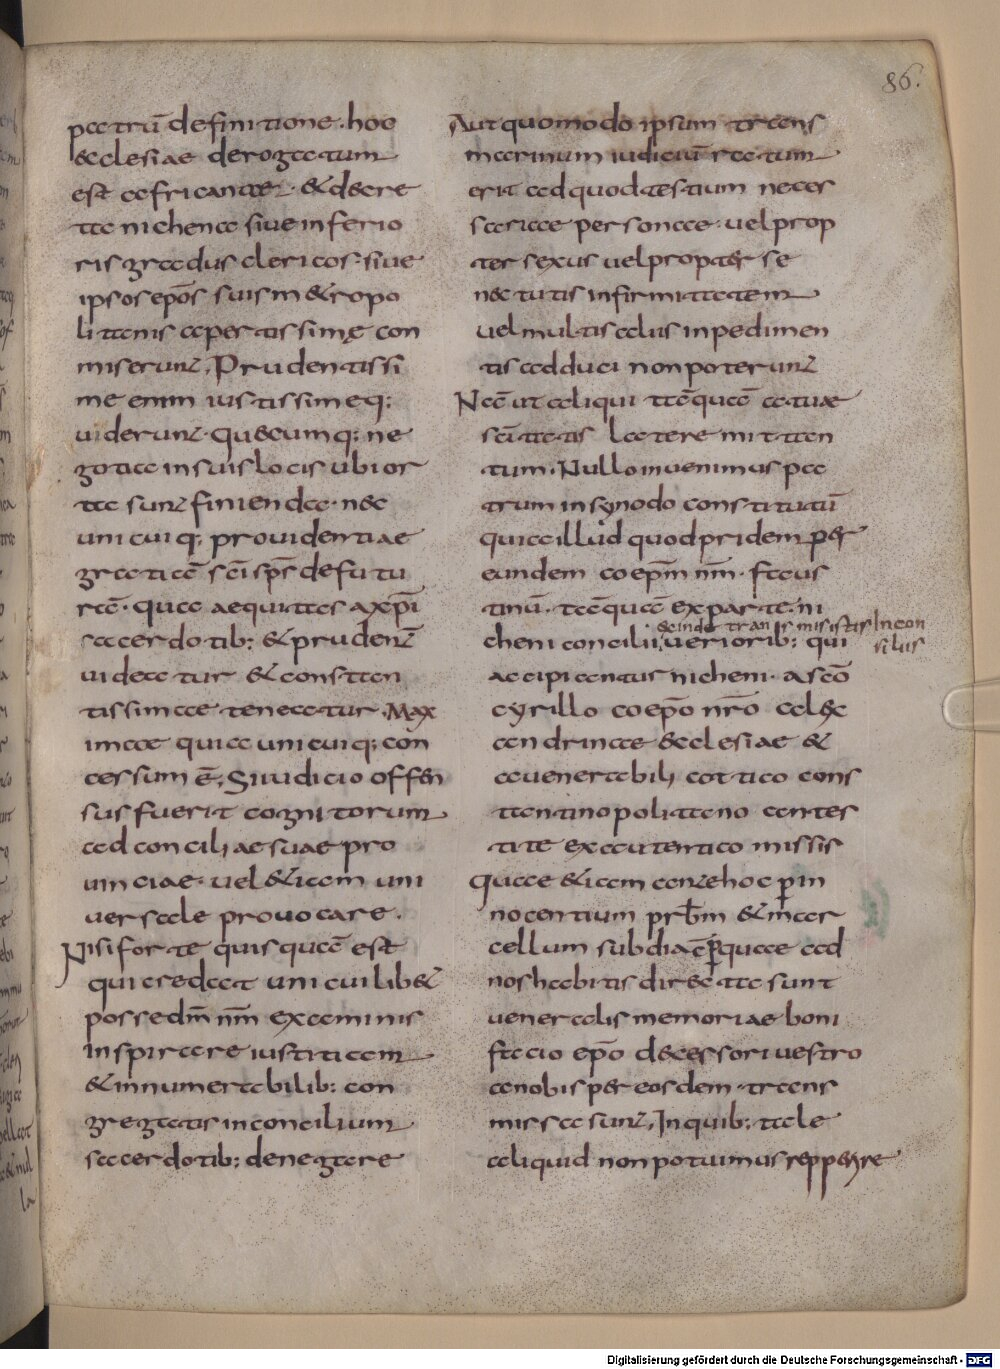 86.
patrū definitione. hoc
ecclesiae derogatum
est africanae. & decre
ta nichena siue inferio
ris gradus clericos. siue
ipsos ep̄os suis m&ropo
litanis apertissimę con
miserunt, Prudentissi
me enim iustissimeq;
uiderunt. quecumq; ne
gotia in suis locis ubi or
ta sunt finienda. nec
unicuiq; prouidentiae
gratiā sc̄i sp̄s defutu
rā. qua aequitas a xp̄i
sacerdotib; & prudent̄
uideatur & constan
tissimae teneatur. Max
imae quia unicuiq; con
cessum ē, Si iudicio offen
sus fuerit cognitorum
ad concilia suae pro
uinciae. uel &iam uni
uersale prouocare.
Nisi forte quisquā est
qui credat unicuilib&
posse dm̄ nm̄ examinis
inspirare iustitiam
& innumerabilib; con
gregatis in concilium
sacerdotib; denegare
Aut quomodo ipsum trans
marinum iudiciū ratum
erit ad quod testium neces
sariae personae. uel prop
ter sexus uel propter se
nectutis infirmitatem
uel multis aliis inpedimen
tis adduci non poterunt
Nā ut aliqui tāquā a tuae
sc̄itatis latere mittan
tum. Nullo inuenimus pa
trum in synodo constitutū
quia illud quod pridem per
eundem coep̄m nm̄. faus
tinū. tāquā ex parte ni
& inde transmisistis In con
siliis
cheni concilii, ueriorib; qui
accipiantur nicheni. a sc̄o
cyrillo coep̄o nr̄o alex
andrinae ecclesiae &
a uenerabili attico cons
tantinopolitano antes
tite ex autentico missis
quae &iam ante hoc p̄ in
nocentium prb̄m & mar
cellum subdiac̄ p̄ quae ad
nos habitis directa sunt
uenerabilis memoriae boni
facio ep̄o decessori uestro
a nobis per eosdem trans
missa sunt, In quib; tale
aliquid non potuimus repperire
Digitalisierung gefördert durch die Deutsche Forschungsgemeinschaft - DFG